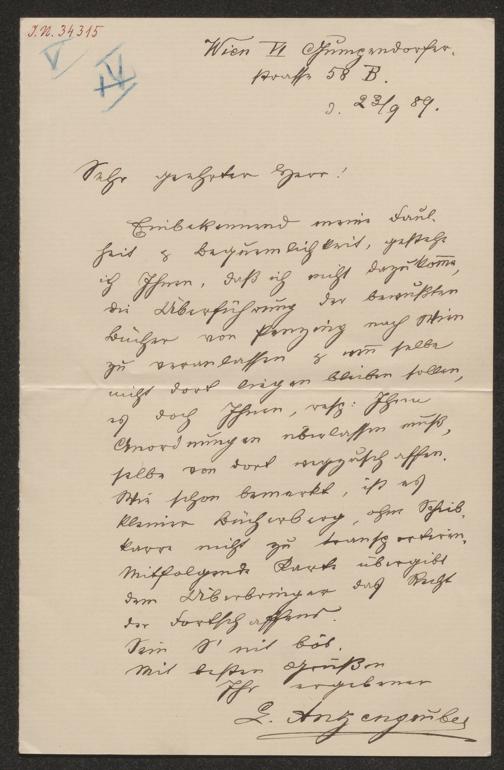 J.N. 34315
V
IV
Wien VI Gumpendorfer-
strasse 56 B.
d. 23/9 89.
Sehr geehrter Herr!
Einbekennend meine Faul-
heit & Bequemlichkeit, gestehe
ich Ihnen, daß ich nicht dazukomme,
die Überführung der bewußten
Bücher von Penzing nach Wien
zu veranlassen & wenn selbe
nicht dort liegen bleiben sollen,
es doch Ihnen, resp: Ihren
Anordnungen überlassen muß,
selbe von dort wegzuschaffen.
Wie schon bemerkt, ist es
kleiner Bücherberg, ohne Schieb-
karre nicht zu transportieren.
Mitfolgende Karte übergibt
dem Überbringer das Recht
der Fortschaffens.
Sein S' nit bös.
Mit besten Grüßen
Ihr ergebener
L. Anzengruber